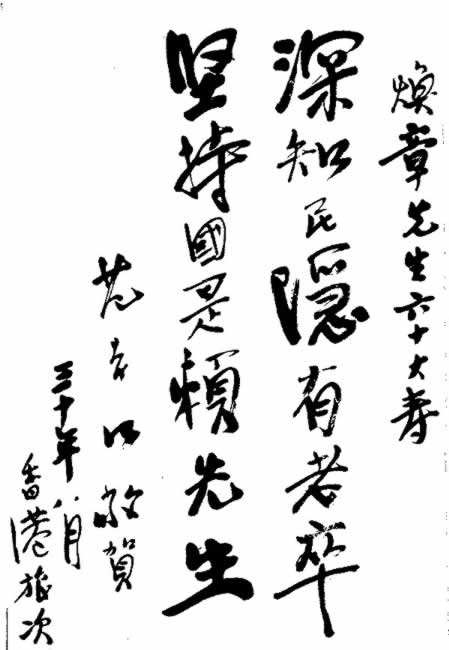 煥章先生六十大寿
深知民隱有老卒
坚持國是賴先生
范长江敬賀
三十年八月
香港旅次